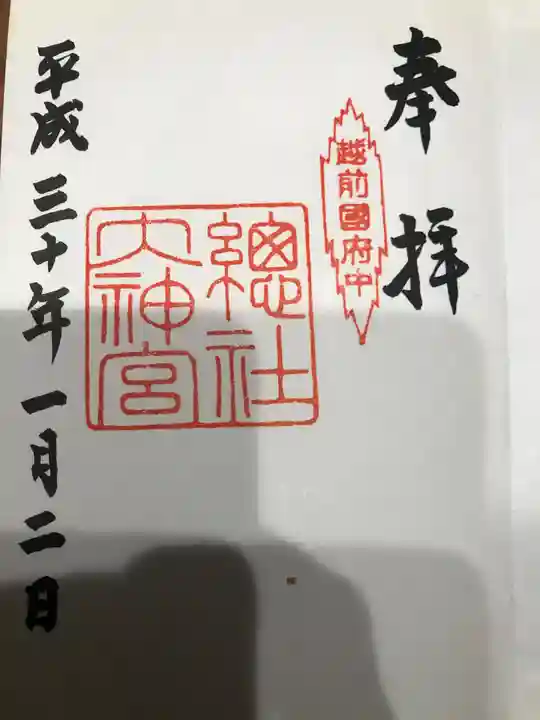 奉拝
越前國府中
總社
大神宮
平成三十年一月二日